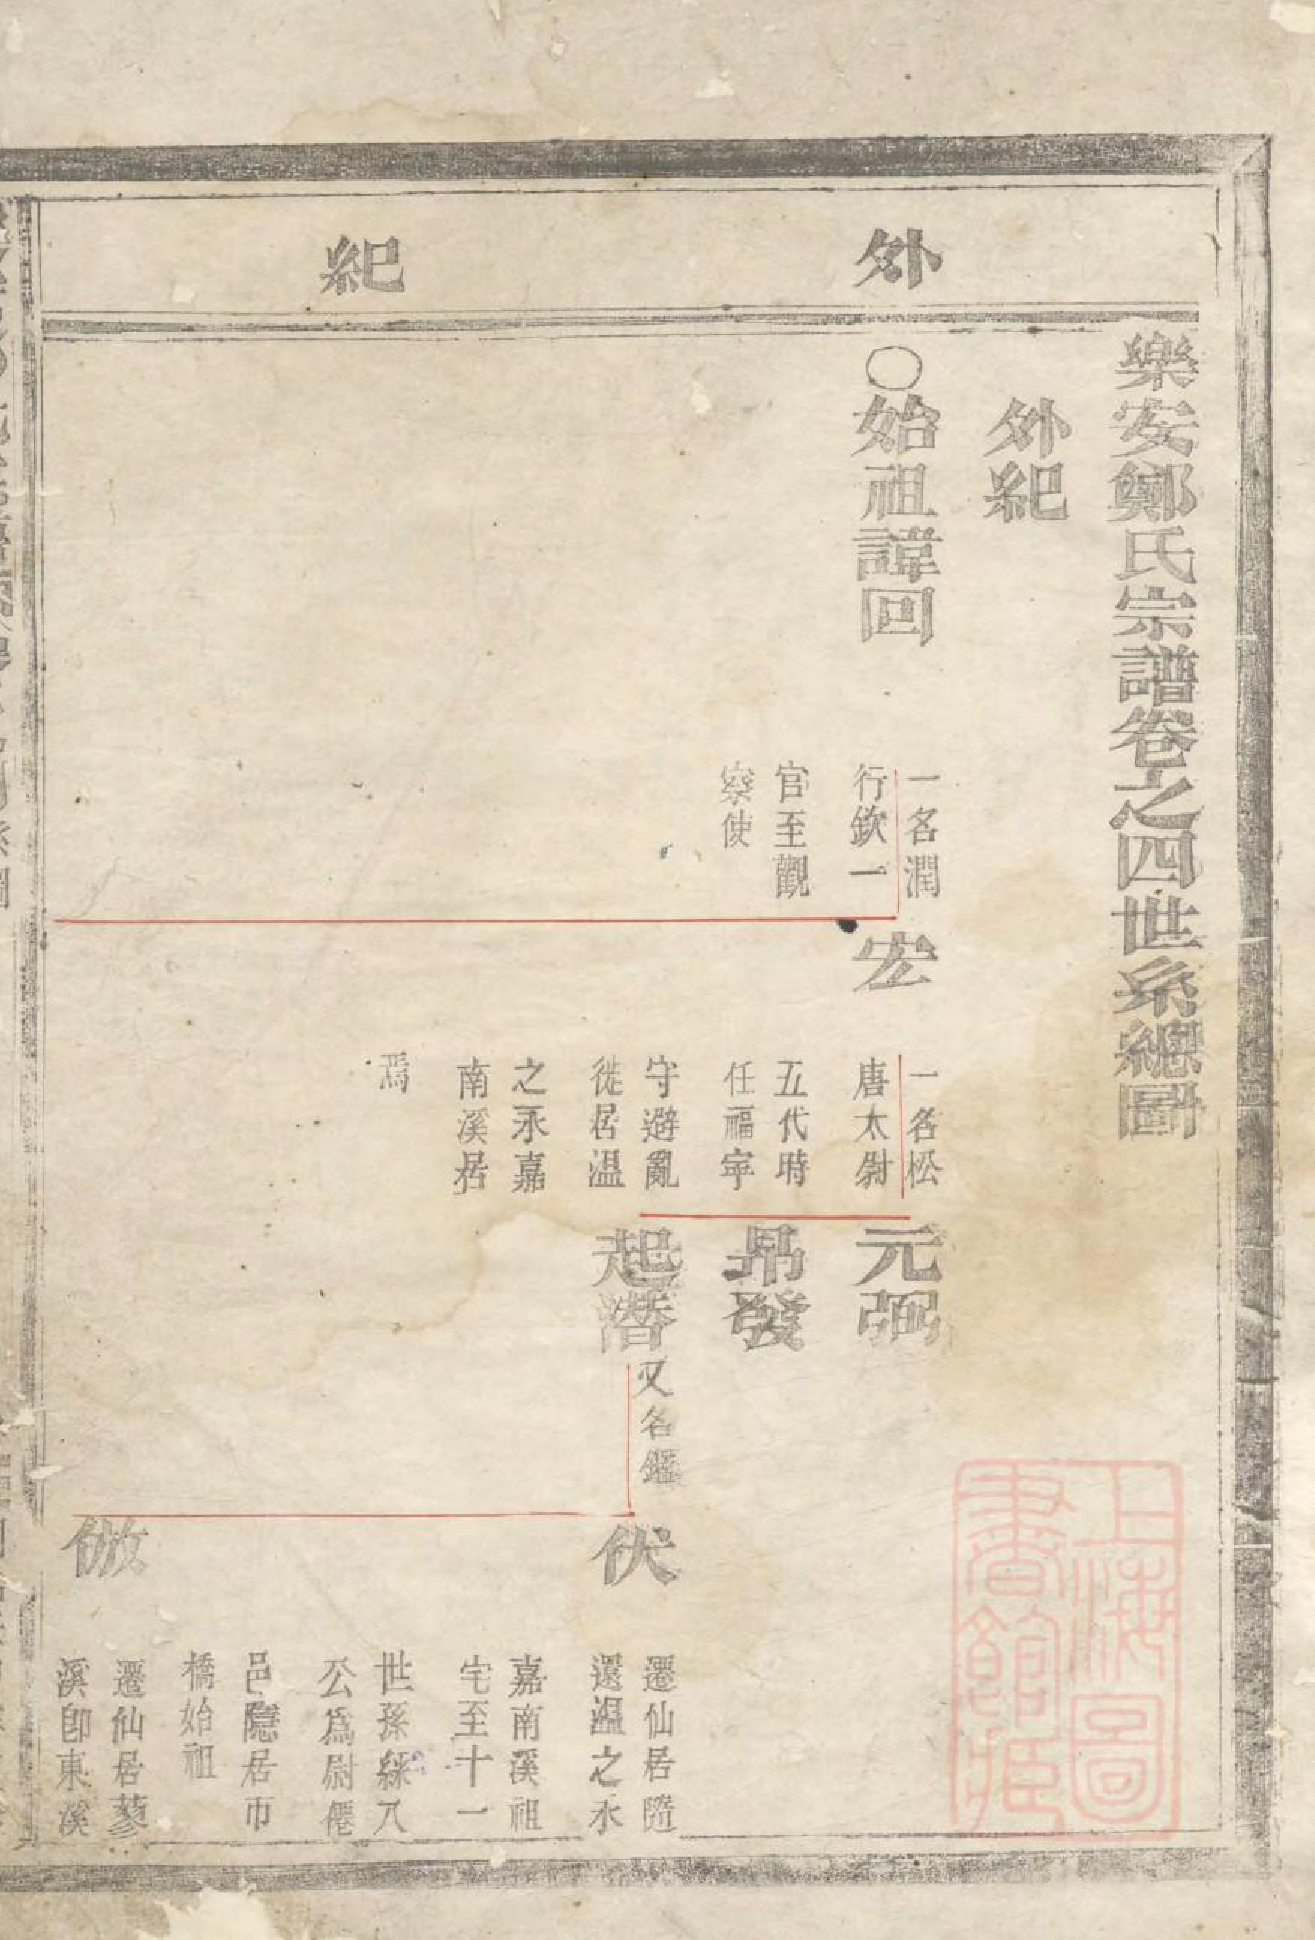 樂安鄭氏宗譜卷之四世系總圖
外紀
外紀
○始祖諱回
一名潤
行欽一
官至觀
察使
宏
一名松
唐太尉
五代時
任福寧
守避亂
徙居温
之永嘉
南溪居
焉
元弼
昴發
起潛
又名鑑
伏
遷仙居隨
還温之永
嘉南溪祖
宅至十一
世孫縣八
公爲尉僊
邑隱居市
橋始祖
倣
遷仙居蓼
溪卽東溪
上海圖書館藏